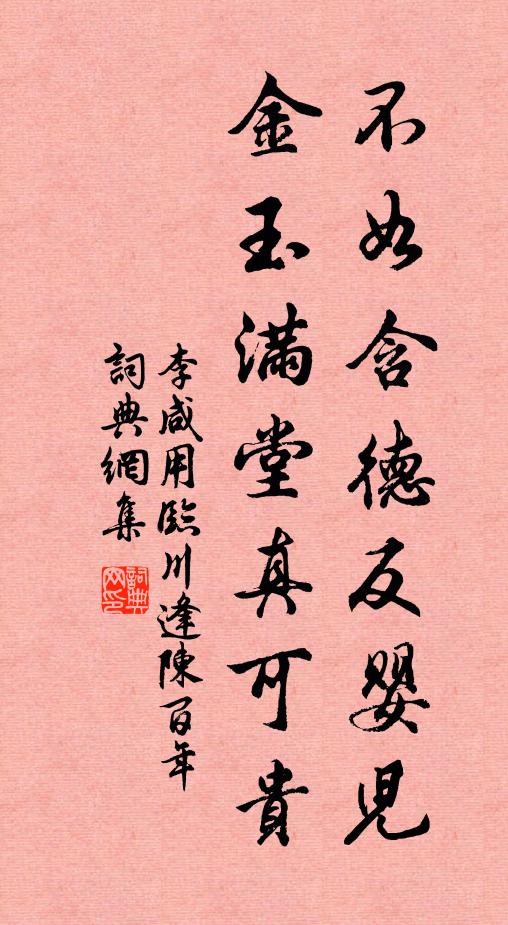 不如含德反嬰兒
金玉滿堂真可貴
李咸用臨川逢陳百年
詞典網集
詞典
网印